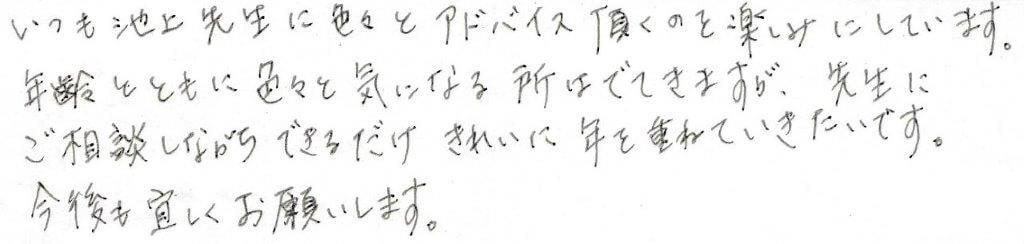 いつも池上先生に色々とアドバイス頂くのを楽しみにしています。
年齢とともに色々と気になる所はでてきますが、先生に
ご相談しながらできるだけきれいに年を重ねていきたいです。
今後も宜しくお願いします。